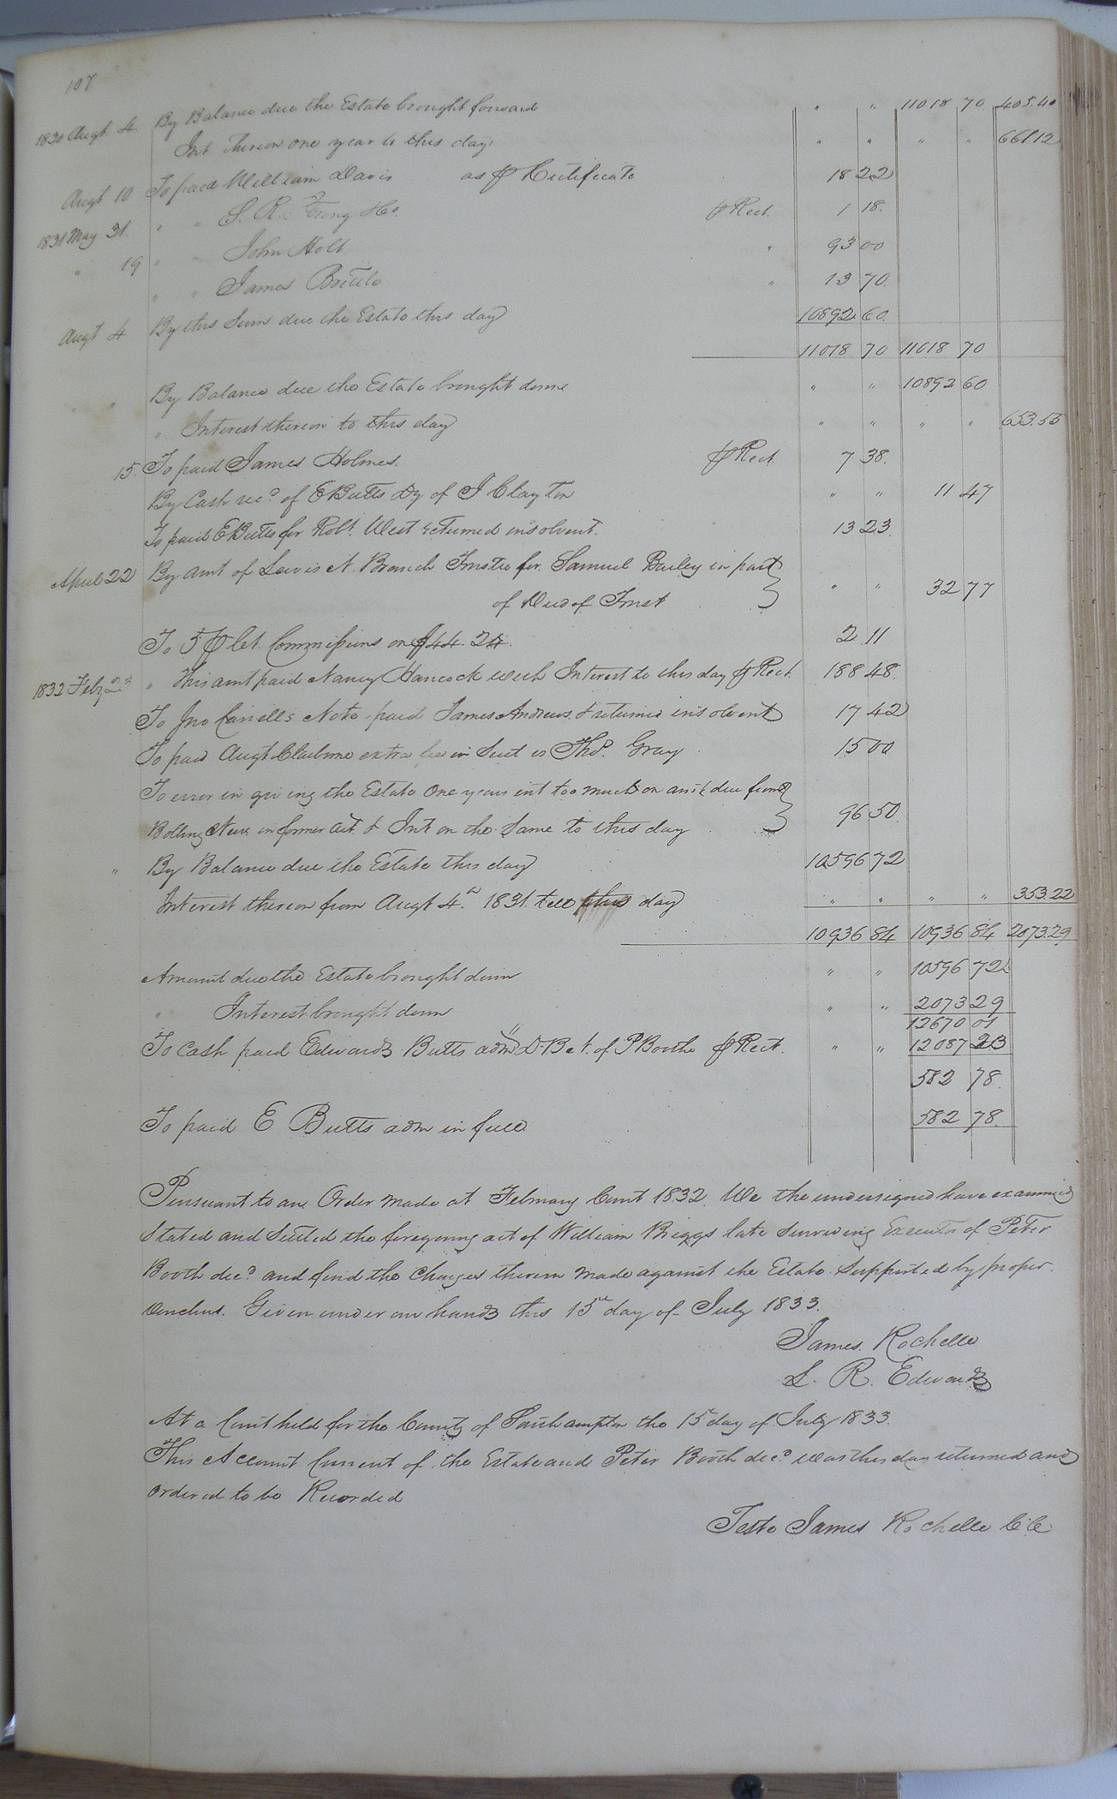 107
1830 Augt 4. By Balance due the Estate brought forward " " 11018 70 405.40
Int thereon one year to this day " " " " 661 12
Augt 10 To paid William Davis as ⅌ Certificate 18 22
1831 May 31. " " S. R. & Co ⅌ Rect. 1 18.
" 19 " John Holt " 93 00
" " James Brittle " 13 70.
Augt 4 By this Sum due the Estate this day 10892 60
11018 70 11018 70
" By Balance due the Estate brought down " " 10892 60
" Interest thereon to this day " " " " 653.55
15. To paid James Holmes. ⅌ Rect. 7 38.
By Cash recd of E Butts Dy of J Clayton " " 11 47
To paid E Butts for Robt. West returned insolvent. 13 23.
April 22 By amt of Lewis N. Branch Trustee for Samuel Bailey in part
of Deed of Trust " " 32 77
To 5 ⅌ Ct. Commissions on $44.24. 2 11
1832 Feby 23 " This amt paid Nancy Hancock with Interest to this day ⅌ Rect. 188 48.
To Jno note paid James Andrews & returned insolvent 17 42
To paid Augt Claiborne extra fee in Suit vs Thos. Gray 15 00
To error in giving the Estate One years int too much on amt due from
Bolling in former act & Int on the Same to this day 96 50.
" By Balance due the Estate this day 10596 72
Interest thereon from Augt 4th 1831 till this day " " " " 353.22
10936 84 10936 84 2073.29
Amount due the Estate brought down " " 10596 72
" Interest brought down " " 2073 29
12670 01
To Cash paid Edward Butts adm D.B &c. of P Booth ⅌ Rect. " " 12087 23
582 78.
To paid E Butts adm in full 582 78.
Pursuant to an Order made at February Court 1832 We the undersigned have examined
Stated and Settled the foregoing act of William Briggs late Surviving Executor of Peter
Booth decd and find the Charges therein made against the Estate Supported by proper
vouchers. Given under our hands this 15th day of July 1833.
James. Rochelle
L. R. Edwards
At a Court held for the County of Southampton the 15 day of July 1833.
This Account Current of the Estate and Peter Booth decd was this day returned and
ordered to be Recorded
Teste James Rochelle C.C